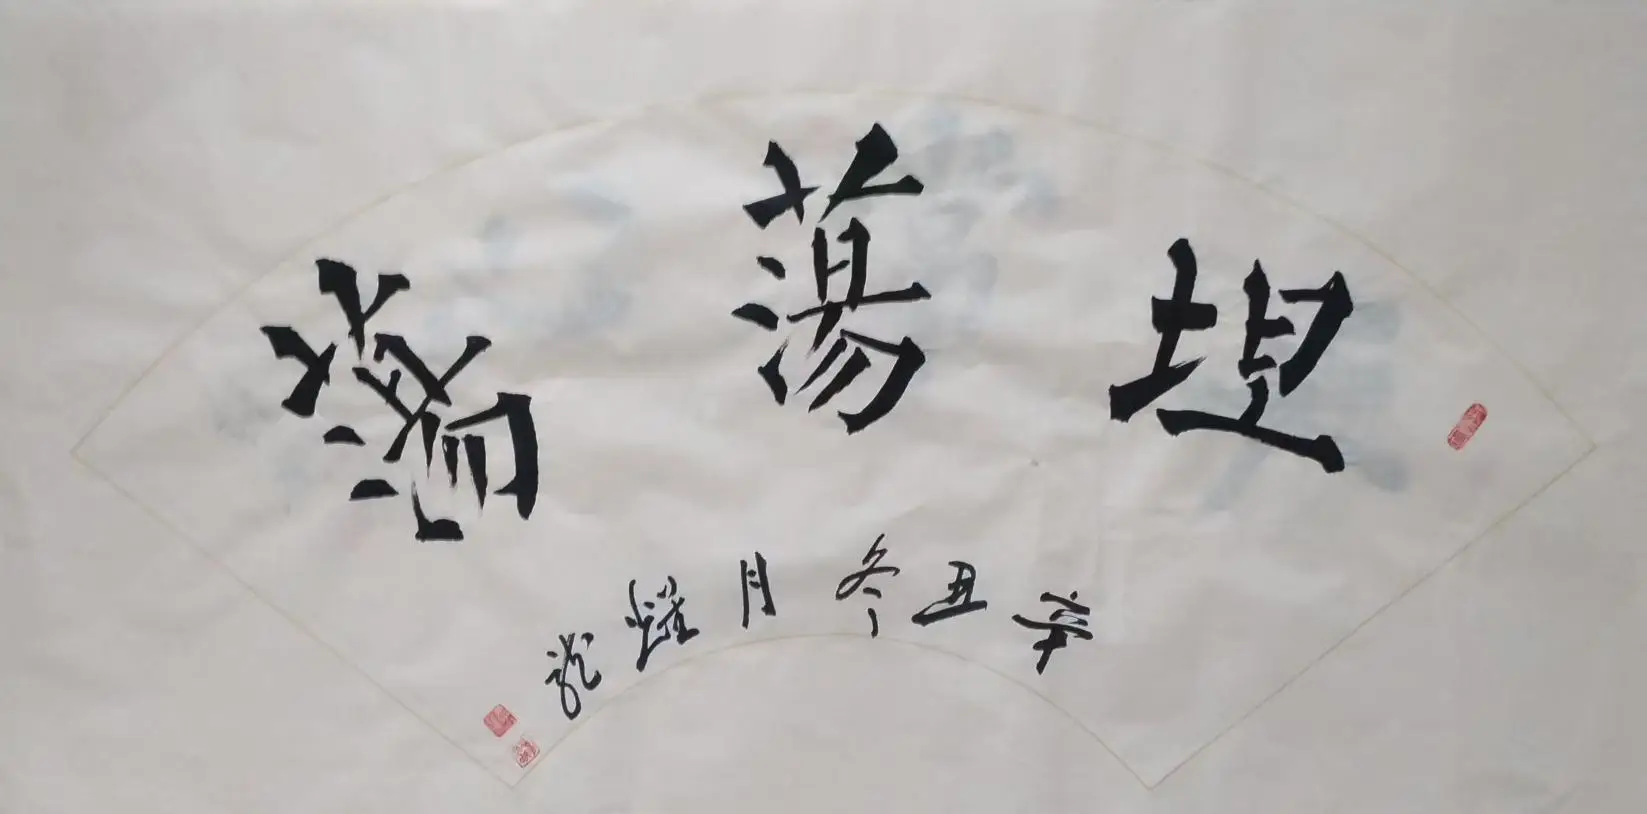 坦蕩蕩
辛丑冬月耀龍